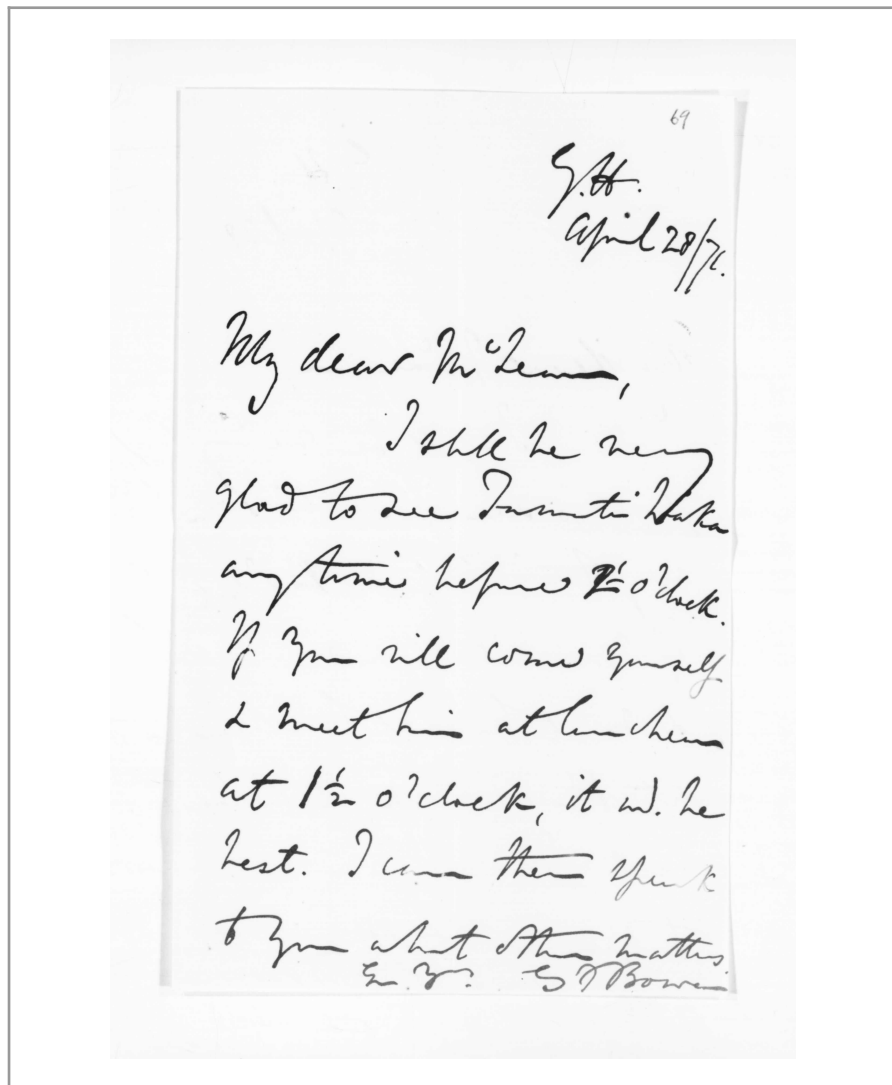 69
G.H.
April 28/71.
My dear McLean,
I shll be very
glad to see Tamati Waka
any time before 2½ o'clock.
If you will come yourself
& meet him at luncheon
at 1½ o'clock, it wd. be
best. I can then speak
to you about other matters.
G F Bowen